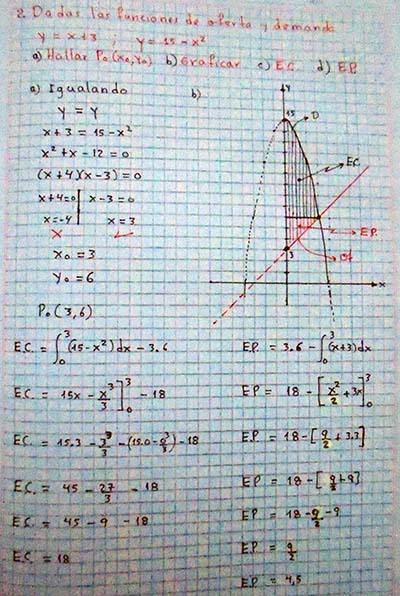 2. Dadas las funciones de oferta y demanda
y = x+3 ; y = 15 - x²
a) Hallar P₀(x₀,y₀) b) Graficar c) E.C. d) E.P.
a) Igualando
y = y
x+3 = 15-x²
x²+x-12=0
(x+4)(x-3)=0
x+4=0 | x-3=0
x=-4 | x=3
x₀ = 3
y₀ = 6
P₀(3,6)
b)
y
15
D
E.C.
E.P.
Of
3
x
E.C. = ∫₀³ (15-x²)dx - 3.6
E.C. = 15x - x³/3 ]₀³ - 18
E.C. = 15.3 - 3³/3 - (15.0 - 0³/3) - 18
E.C. = 45 - 27/3 - 18
E.C. = 45 - 9 - 18
E.C. = 18
E.P. = 3.6 - ∫₀³ (x+3)dx
E.P = 18 - [x²/2 + 3x]₀³
E.P. = 18 - [9/2 + 3.3]
E.P = 18 - [9/2 + 9]
E.P = 18 - 9/2 - 9
E.P = 9/2
E.P = 4,5